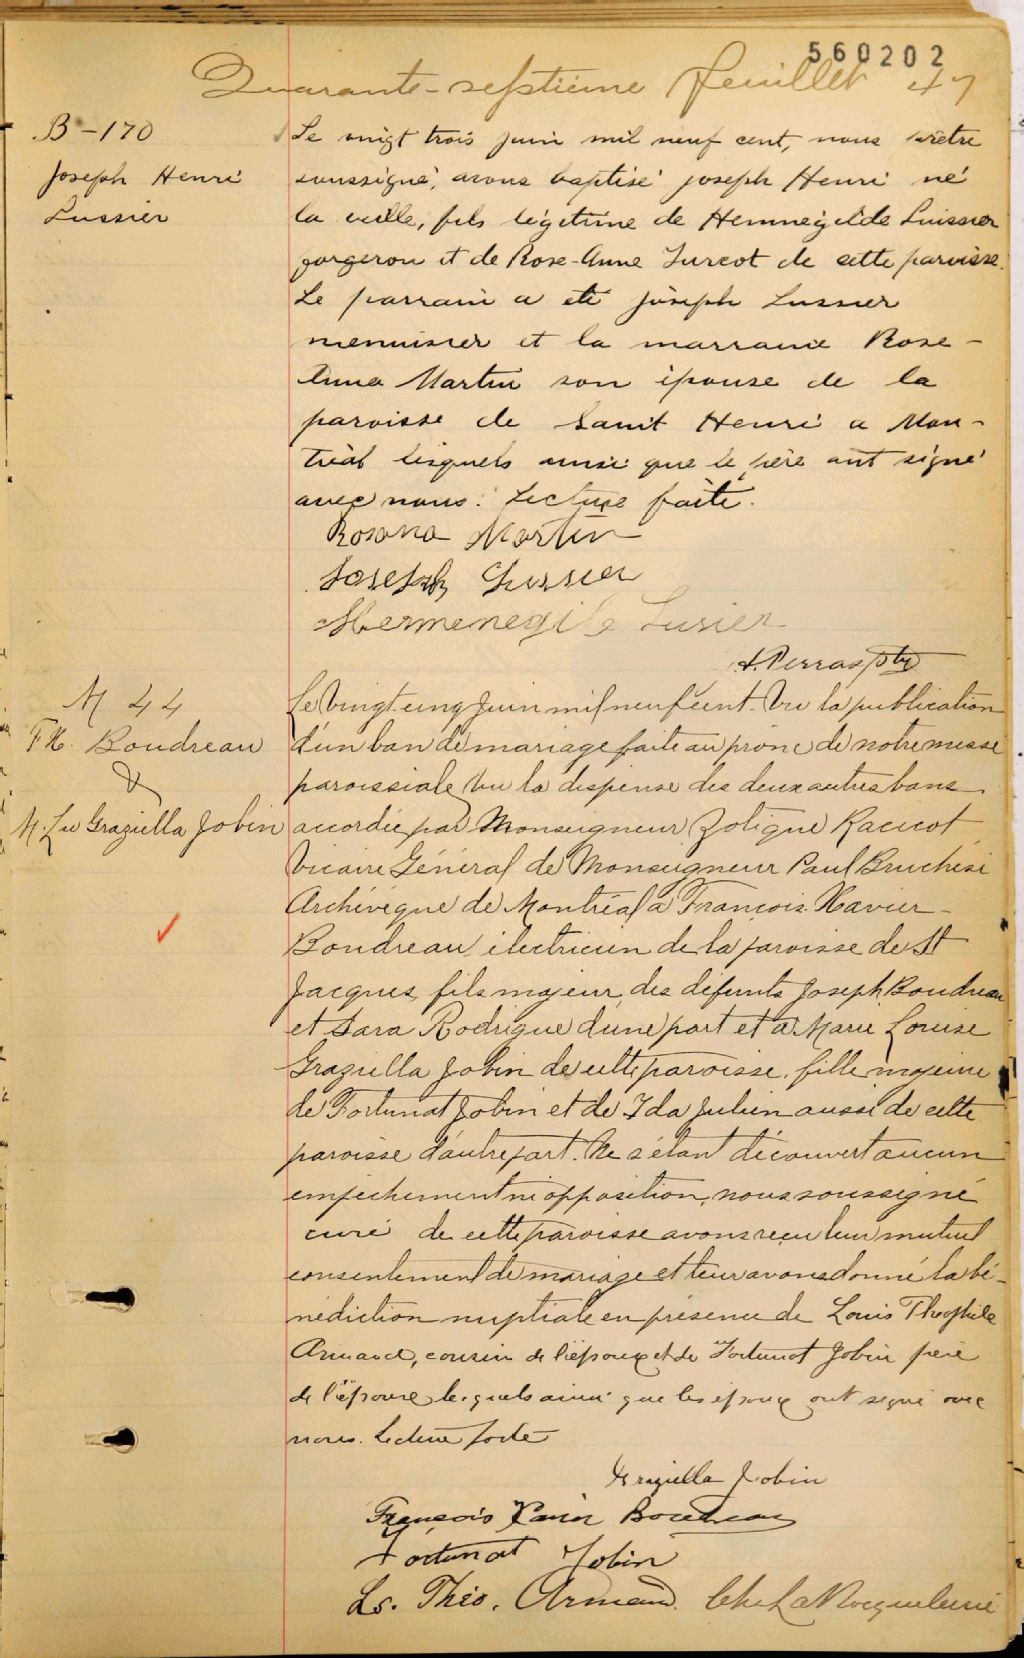 560202
Quarante-septième feuillet 47
B-170
Joseph Henri
Lussier
Le vingt trois juin mil neuf cent, nous prêtre
soussigné, avons baptisé Joseph Henri né
la veille, fils légitime de Hermnégilde Luissier
forgeron et de Rose-Anne Turcot de cette paroisse.
Le parrain a été Joseph Lussier
menuisier et la marraine Rose-
Anna Martin son épouse de la
paroisse de Saint Henri a Mon-
tréal lesquels ainsi que le père ont signé
avec nous. Lecture faite.
Rosana Martin
Joseph Lussier
Hermenegile Lusier
Perras ptre
M 44
F.X. Boudreau
&
M. Lse Graziella Jobin
Le Vingt cinq Juin mil neuf cent. Vu la publication
d'un ban de mariage faite au prône de notre messe
paroissiale Vu la dispense des deux autres bans
accordée par Monseigneur Zotique Racicot
Vicaire Général de Monseigneur Paul Bruchési
Archévêque de Montréal à François-Xavier-
Boudreau, électricien de la paroisse de St
Jacques, fils majeur des défunts Joseph Boudreau
et Sara Rodrigue d'une part et à Marie Louise
Graziella Jobin de cette paroisse, fille majeure
de Fortunat Jobin et de Ida Julien aussi de cette
paroisse d'autre part. Ne s'étant découvert aucun
empêchement ni opposition, nous soussigné
curé de cette paroisse avons reçu leur mutuel
consentement de mariage et leur avons donné la bé-
nédiction nuptiale en présence de Louis Théophile
Armand, cousin de l'époux et de Fortunat Jobin père
de l'épouse lesquels ainsi que les époux ont signé avec
nous. Lecture faite
Graziella Jobin
François Xavier Boudreau
Fortunat Jobin
Ls. Théo. Armand. Chs LaRocque curé